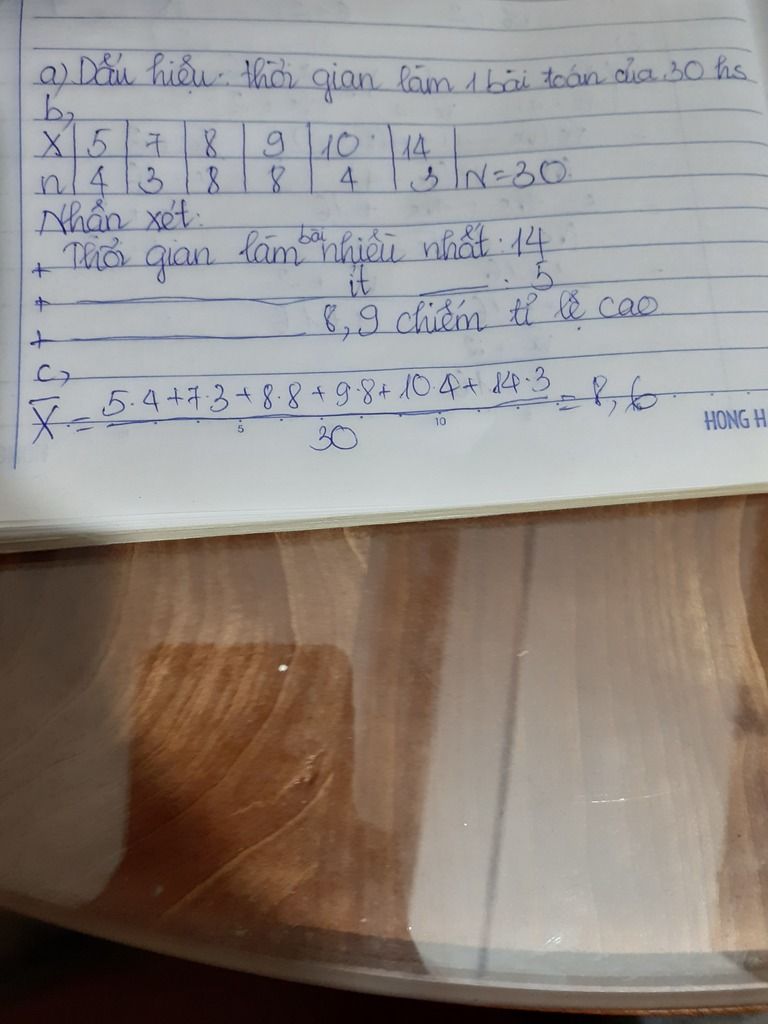 a) Dấu hiệu: thời gian làm 1 bài toán của 30 hs
b,
X 5 7 8 9 10 14
n 4 3 8 8 4 3 N=30
Nhận xét:
+ Thời gian làm bài nhiều nhất: 14
+ ít : 5
+ 8, 9 chiếm tỉ lệ cao
c,
X̄ = 5·4+7·3+8·8+9·8+10·4+14·3 / 30 = 8,6
5 10
HONG H